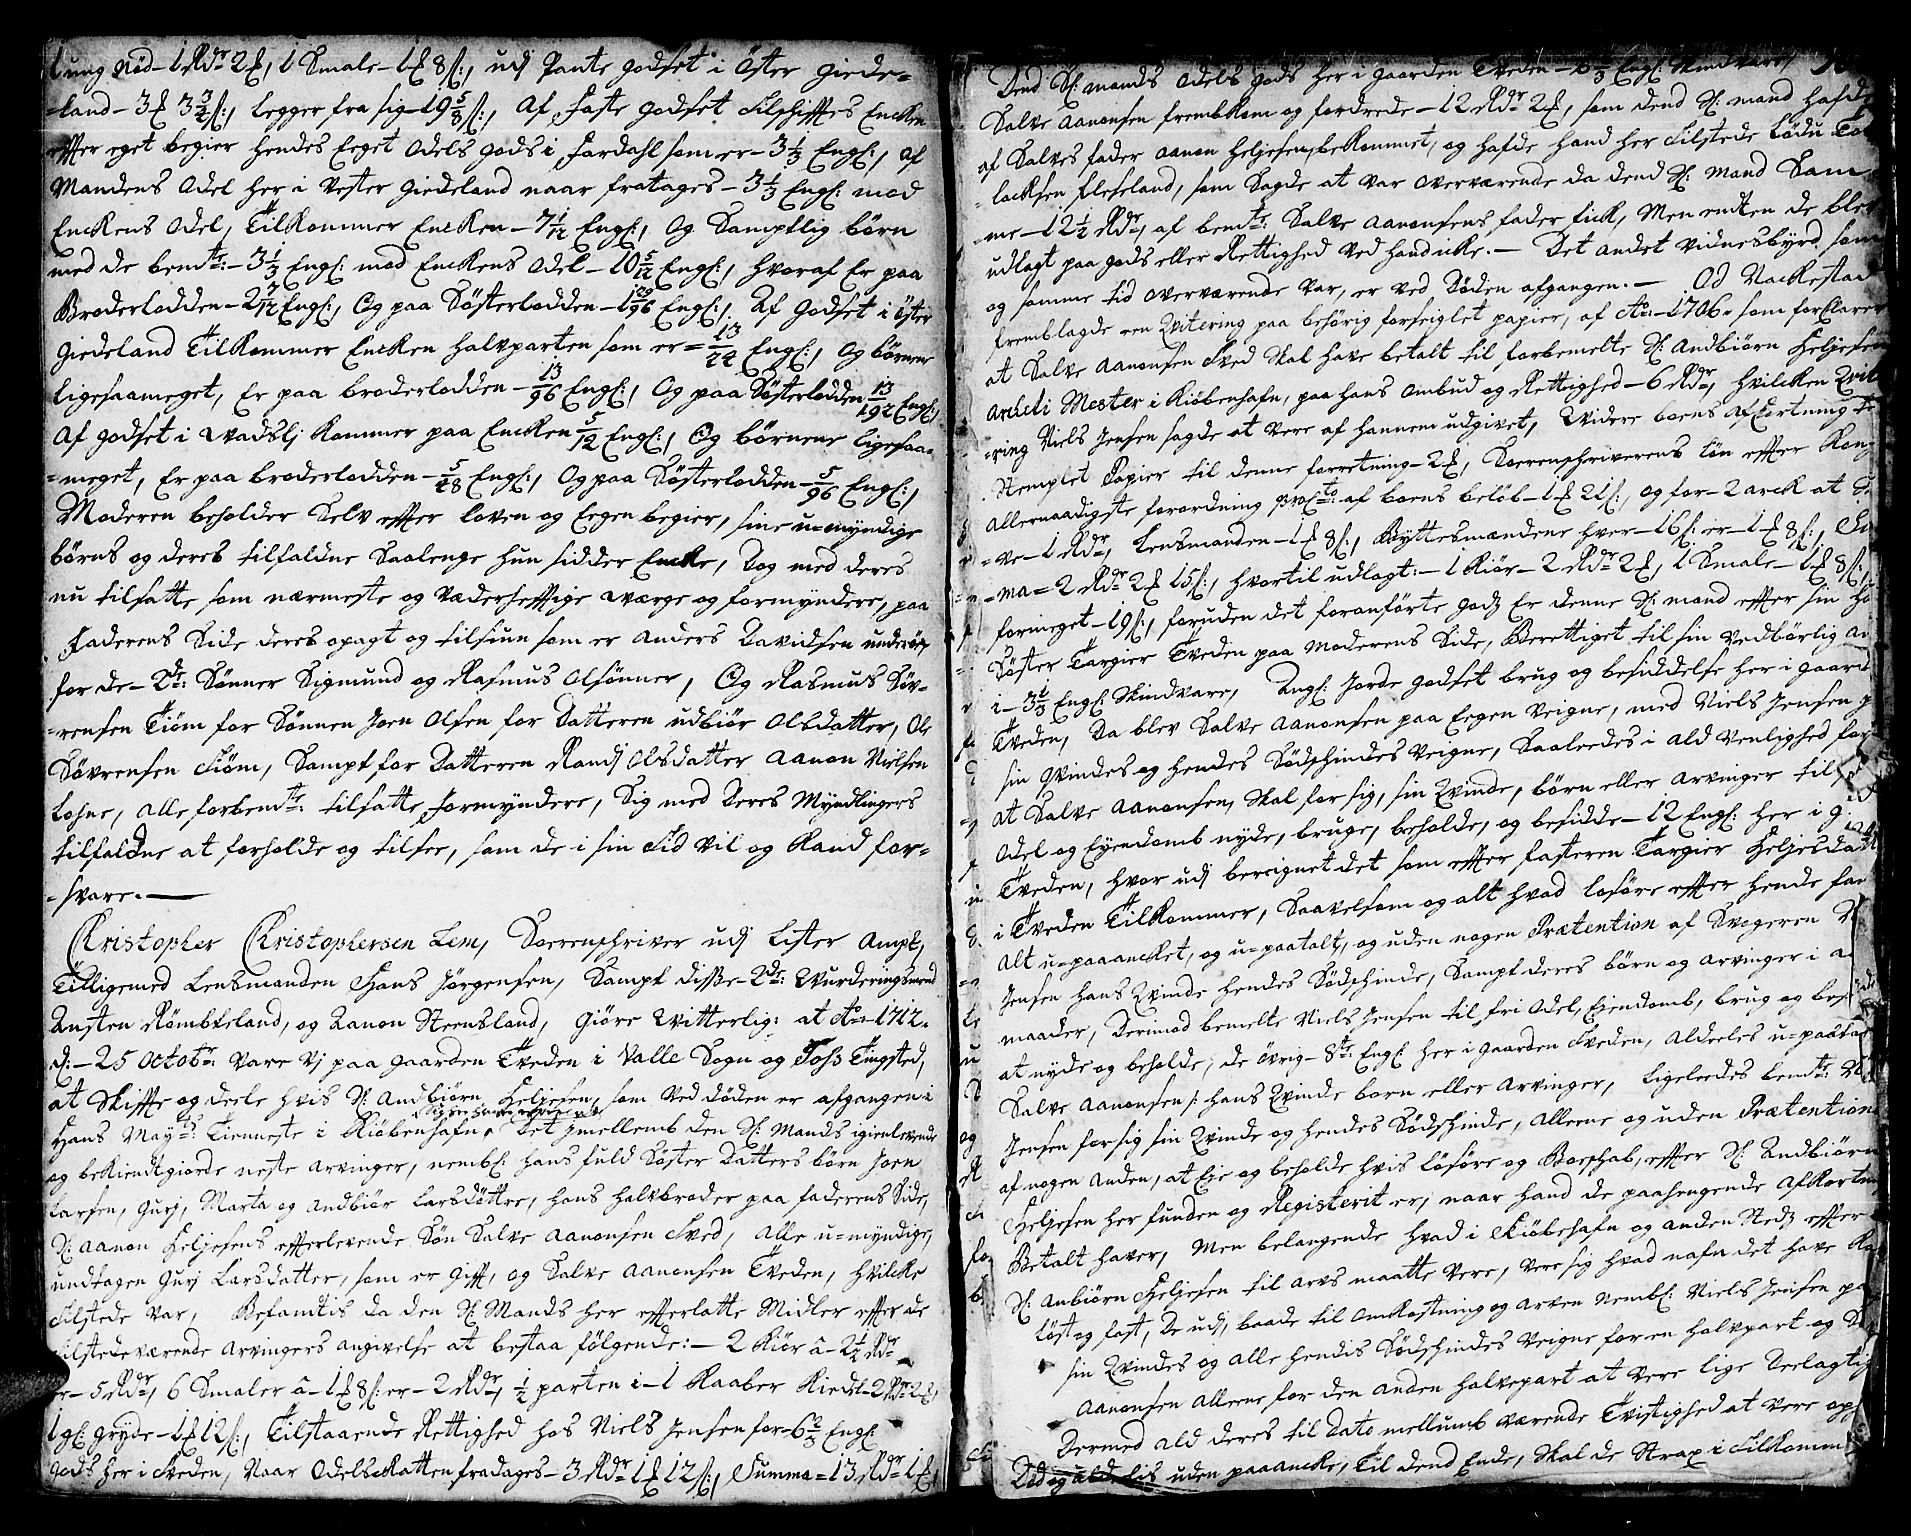 1 ung Nød - 1 Rdr 2 £, 1 Smale - 1 £ 8 s:, udj Pante godset i Øster Giede=
=land - 3 £ 3 3/4 s:, legger fra sig - 19 5/8 s:, Af Faste godset Tilskifftes Encken
effter eget begier hendes Eeget Odels gods i Fardahl som er - 3 1/3 Engs:, af
Mandens Odel her i Vester Giedeland naar fratages - 3 1/3 Engs: mod
Enckens Odel, Tilkommer Encken - 7 1/12 Engs:, Og Samptlig børn
med de bemte: - 3 1/3 Engs: mod Enckens Odel - 10 5/12 Engs:, hvoraf Er paa
Broderlodden - 2 7/12 Engs:, Og paa Søsterlodden - 1 29/96 Engs:, Af Godset i Øster
Giedeland Tilkommer Encken halvparten som er = 13/24 Engs:, Og børnene
ligesaameget, Er paa broderlodden - 13/96 Engs:, Og paa Søsterlodden 13/192 Engs:,
Af godset i Vadslj kommer paa Encken 5/12 Engs:, Og børnene ligesaa=
=meget, Er paa broderlodden - 5/48 Engs:, Og paa Søsterlodden - 5/96 Engs:,
Moderen beholder Selv effter loven og Eegen begier, sine u=myndige
børns og deres tilfaldne Saalenge hun sidder Encke, Dog med deres
nu tilsatte som nærmeste og Vederhefftige værge og formyndere, paa
Faderens Side deres opagt og tilsiun som er Anders Davidsen
for de - 2de: Sønner Sigmund og Rasmus Olsønner, Og Rasmus Søv=
=rensen Tiøm for Sønnen Joen Olsen for Datteren Udbiør Olsdatter, Ole
Søvrensen Tiøm, Sampt for Datteren Randj Olsdatter Aanon Nielsen
Lohne, alle forbemte: tilsatte Formyndere, Sig med Deres Myndlingers
tilfaldne at forholde og tilsee, som de i sin Tid vil og kand for=
=svare. -
Christopher Christophersen Lem, Soerenschriver udj Lister Ampt,
Tilligemed Lensmanden Hans Jørgensen, Sampt disse - 2de: Vurderingsmend
Austen Rømbkeland, og Aanon Steensland, Giøre Vitterlig: at Ao: 1712.
d: - 25 Octobr: vare Vj paa gaarden Tveden i Valle Sogn og Tofs Tingsted,
at Skiffte og deele hvis Sl: Andbiørn Heljesen, som ved døden er afgangen i
Hans Mayts: Tienneste i Kiøbenhafn, Det imellemb den Sl: Mands igienlevende
og bekiendtgiorde neste arvinger, nembl: hans fuld Søster Datters børn Joen
Larsen, Gurj, Marta og Andbiør Larsdøttre, hans halvbroder paa faderens Side,
Sl: Aanon Heljesens effterlevende Søn Salve Aanonsen Tved, Alle u=myndige,
undtagen Gurj Larsdatter, som er gifft, og Salve Aanonsen Tveden, hvilcke
tilstede var, Befandtis da den Sl: Mands her effterlatte Midler effter de
tilstedeværende arvingers angivelse at bestaa følgende: - 2 Kiør â - 2 1/2 Rdr
er - 5 Rdr, 6 Smaler â - 1 £ 8 s: er - 2 Rdr, 1/2 parten i - 1 Kaaber Kiedel - 2 Rdr 2 £,
1 gl: Gryde - 1 £ 12 s:, Tilstaaende Rettighed hos Niels Jensen for - 6 2/3 Engs:
gods her i Tveden, Naar Odelskatten fradages - 3 Rdr 1 £ 12 s:, Summa = 13 Rdr 1 £,
Dend Sl: mands Odels gods her i gaarden Tveden - 6 2/3 Engs: Skindvare,
Salve Aanonsen frembkom og fordrede - 12 Rdr 2 £, som dend Sl: mand hafde
af Salves fader Aanon Heljesen, bekommet, og hafde hand her tilstede
=lacksen Fleseland, som Sagde at var overværende da dend Sl: Mand Sam=
=me - 12 1/2 Rdr, af bemte: Salve Aanonsens fader fick, Men endten de blef
udlagt paa gods eller Rettighed ved hand icke. - Det andet Vidnesbyrd, som
og samme tid overværende var, er ved døden afgangen. - Od Nackestad
fremblagde een Qvitering paa behørig forseiglet papier, af Ao: - 1706. som forclarer
at Salve Aanonsen Tved Skal have betalt til forbemelte Sl: Andbiørn Heljesen
Archli Mester i Kiøbenhafn, paa hans Ombud og Rettighed - 6 Rdr, hvilcken Qvit
=ring Niels Jensen sagde at vere af hannem udgivet, Widere boens Afkortning
Stemplet Papier til denne forretning - 2 £, Soerenschriverens løn effter Kong:
allernaadigste forordning af boens beløb - 1 £ 21 s:, og for - 2 arck at
=ve - 1 Rdr, Lensmanden - 1 £ 8 s:, Byttesmændene hver - 16 s: er - 1 £ 8 s:,
=ma = 2 Rdr 2 £ 15 s:, hvortil udlagt: - 1 Kiør - 2 Rdr 2 £, 1 Smale - 1 £ 8 s:,
formeget - 19 s:, foruden det foranførte gods Er denne Sl: mand effter sin
Søster Targier Tveden paa Moderens Side, Berettiget til sin vedbørlig
i - 3 1/3 Engs: Skindvare, Angl: Jorde godset brug og besiddelse her i gaard
Tveden, Da blev Salve Aanonsen paa Eegen Veigne, med Niels Jensen
sin Qvindes og hendes Sødschindes Veigne, Saaleedes i ald Venlighed for
at Salve Aanonsen, Skal for sig, sin Qvinde, børn eller arvinger til
Odel og Eyendomb nyde, bruge, beholde, og besidde - 12 Engs: her i
Tveden, hvor udj bereignet det som effter fasteren Targier Heljesdatt
i Tveden Tilkommer, Saavelsom og alt hvad løsøre effter hende
alt u=paaancket, og u=paatalt, og uden nogen Prætention af Svogeren
Jensen hans Qvinde hendes Sødschinde, Sampt deres børn og arvinger i
maader, Derimod bemelte Niels Jensen til fri Odel, Eyendomb, brug og
at nyde og beholde, de øvrig - 8te: Engs: her i gaarden Tveden, Aldeeles u=paatalt
Salve Aanonsen /: hans Qvinde born eller arvinger, Ligeleedes bemte:
Jensen for sig sin Qvinde og hendes Sødschinde, Alleene og uden Prætention
af nogen Anden, at Eje og beholde hvis løsøre og Boeschab, effter Sl: Andbiørn
Heljesen her funden og Registerit er, naar hand de paahengende Afkortning
Betalt haver, Men belangende hvad i Kiøbehafn og anden Steds effter
Sl: Anbiørn Heljesen til arvs maatte vere, vere sig hvad nafn det have
løst og fast, De udj, baade til omkostning og arven nembl: Niels Jensen
sin Qvindes og alle hendis Sødschindes Veigne for en halvpart og
Aanonsen alleene for den anden halvepart at vere lige Deelagtig
Dermed ald deres til Dato mellumb værende Tvistighed at vere
uden paaancke, Til dend Ende, Skal de Strax i